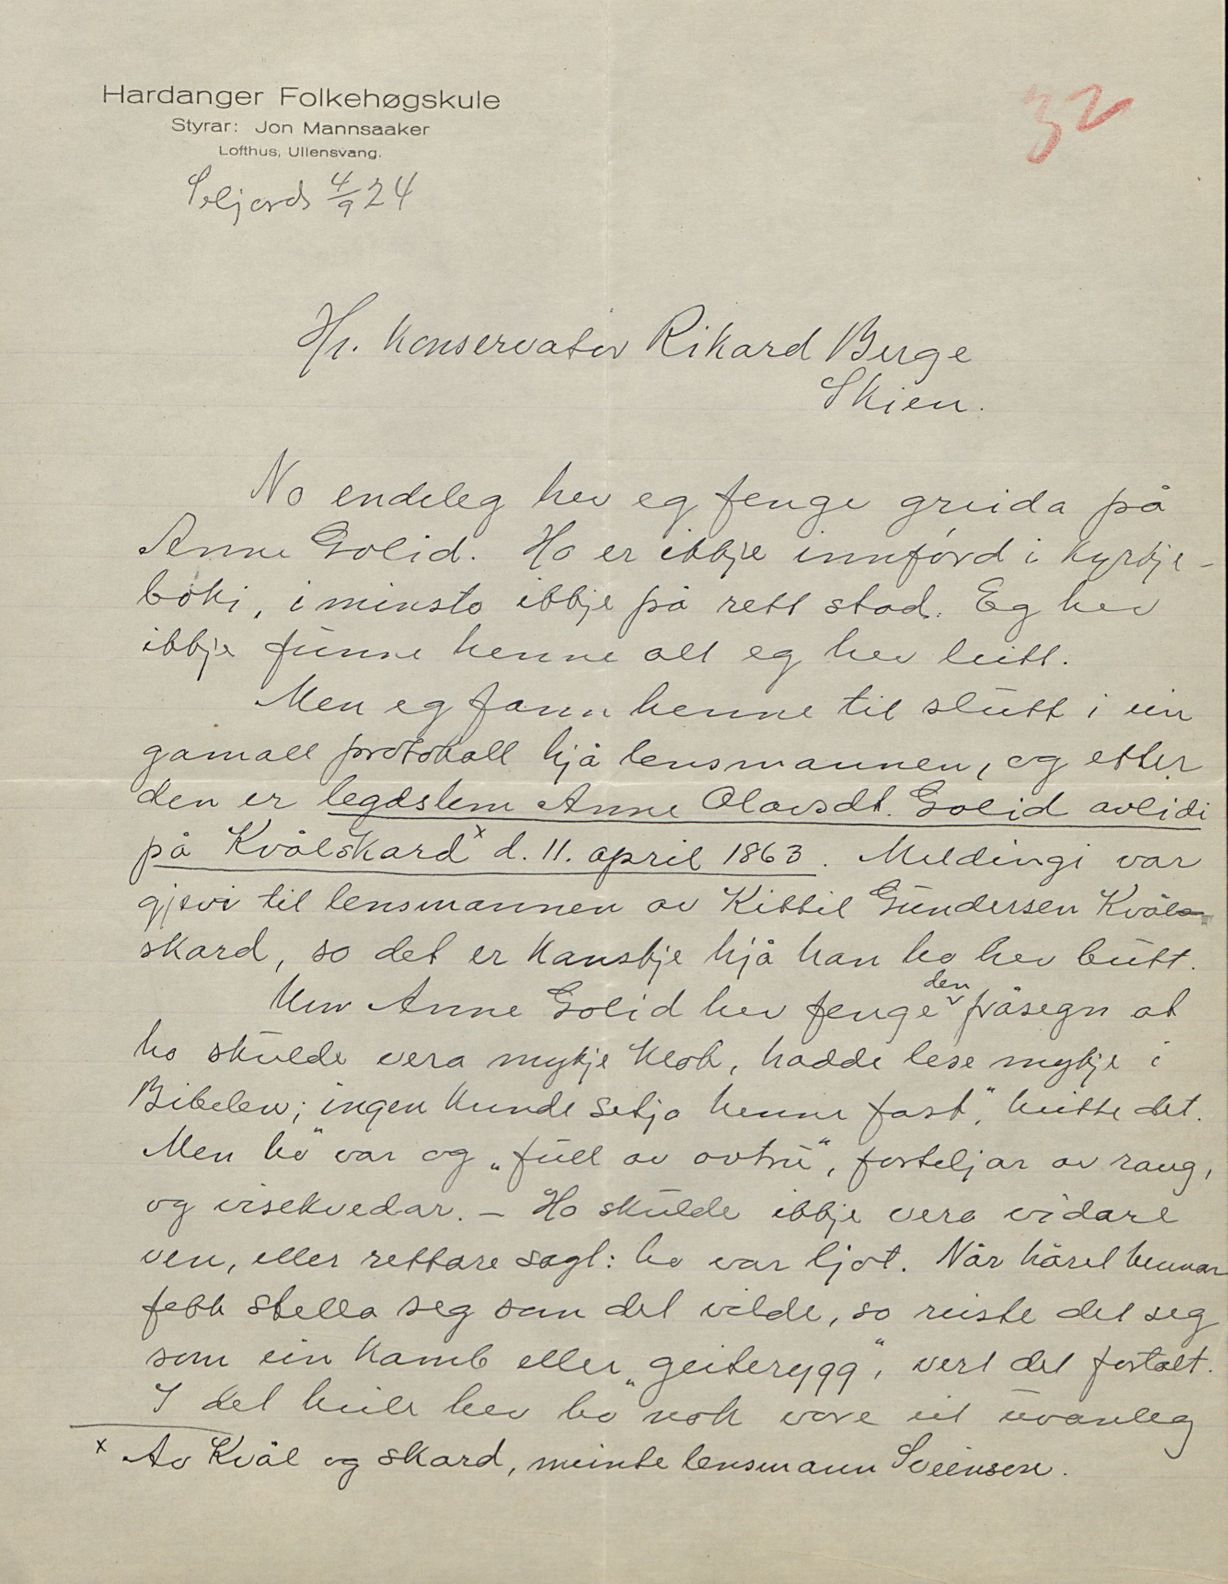 Hardanger Folkehøgskule
Styrar: Jon Mannsaaker
Lofthus, Ullensvang.
32
Seljord 4/9 24
Hr. Konservator Rikard Berge
Skien.
No endeleg hev eg fenge greida på
Anne Golid. Ho er ikkje innförd i kyrkje-
boki, i minsto ikkje på rett stad. Eg hev
ikkje funne henne alt eg hev leitt.
Men eg fann henne til slutt i ein
gamall protokoll hjå lensmannen, og etter
den er legdslem Anne Olavsdt. Golid avlidi
på Kvålskard x d. 11. april 1863. Meldingi var
gjevi til lensmannen av Kittil Gundersen Kvål-
skard, so det er kanskje hjå han ho hev butt.
Um Anne Golid hev fenge den påsegn at
ho skulde vera mykje klok, hadde lese mykje i
Bibelen; ingen kunde setja henne fast," heitte det.
Men ho" var og „full av ovtru", forteljar av rang,
og visekvedar. – Ho skulde ikkje vera vidare
ven, eller rettare sagt: ho var ljot. Når håret hennar
fekk stella seg som det vilde, so reiste det seg
som ein kamb eller „geiterygg", vert det fortalt.
I det heile hev ho nok vore eit uvanleg
x Av Kvål og skard, meinte lensmann Sveinsen.